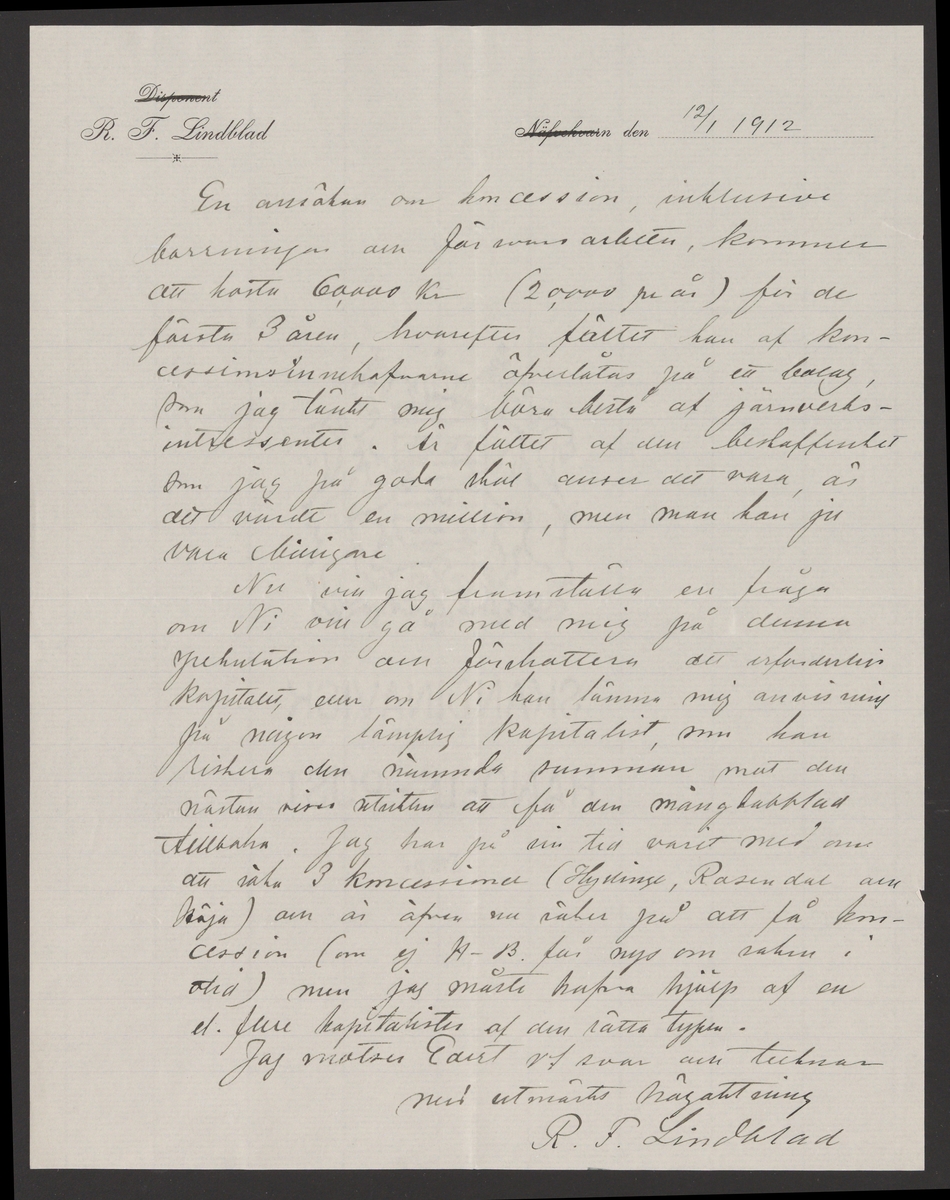 Disponent
R. F. Lindblad
Näfvekvarn den 12/1 1912
En ansökan om koncession, inklusive
borrningar och försvarsarbeten, kommer
att kosta 60,000 Kr (20,000 pr år) för de
första 3 åren, hvarefter fältet kan af kon-
cessionsinnehafvarne öfverlåtas på ett bolag,
som jag tänkt mig böra bestå af järnverks-
intressenter. Är fältet af den beskaffenhet
som jag på goda skäl anser det vara, är
det värdt en million, men man kan ju
vara billigare
Nu vill jag framställa en fråga
om Ni vill gå med mig på denna
spekulation och förskottera det erforderliga
kapitalet, eller om Ni kan lämna mig anvisning
på någon lämplig kapitalist, som kan
riskera den nämnda summan mot den
nästan vissa utsikten att få den mångdubblad
tillbaka. Jag har på sin tid varit med om
att söka 3 koncessioner (Hyllinge, Rosendal och
) och är äfven nu säker på att få kon-
cession (om ej H-B. får nys om saken i
tid) men jag måste hafva hjälp af en
el. flere kapitalister af den rätta typen.
Jag motser Edert svar och tecknar
med utmärkt högaktning
R. F. Lindblad